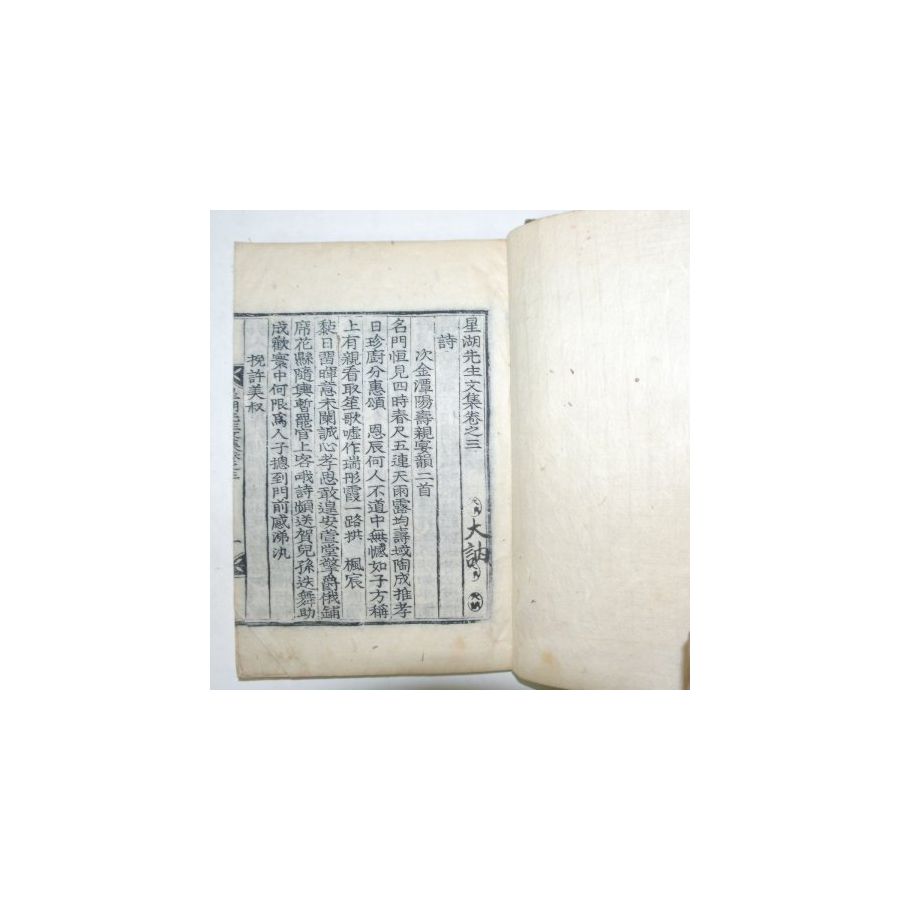 星湖先生文集卷之三
大訥
詩
次金潭陽壽親宴韻二首
名門恒見四時春尺五連天雨露均壽域陶成推孝
日珍廚分惠頌　恩辰何人不道中無憾如子方稱
上有親看取笙歌噓作瑞彤霞一路拱　楓宸
藜日留暉意未闌誠心孝思敢遑安萱堂擎爵俄鋪
席花縣隨輿暫罷官上客哦詩頻送賀兒孫迭舞助
成歡寰中何限爲人子摠到門前感涕汍
挽許美叔